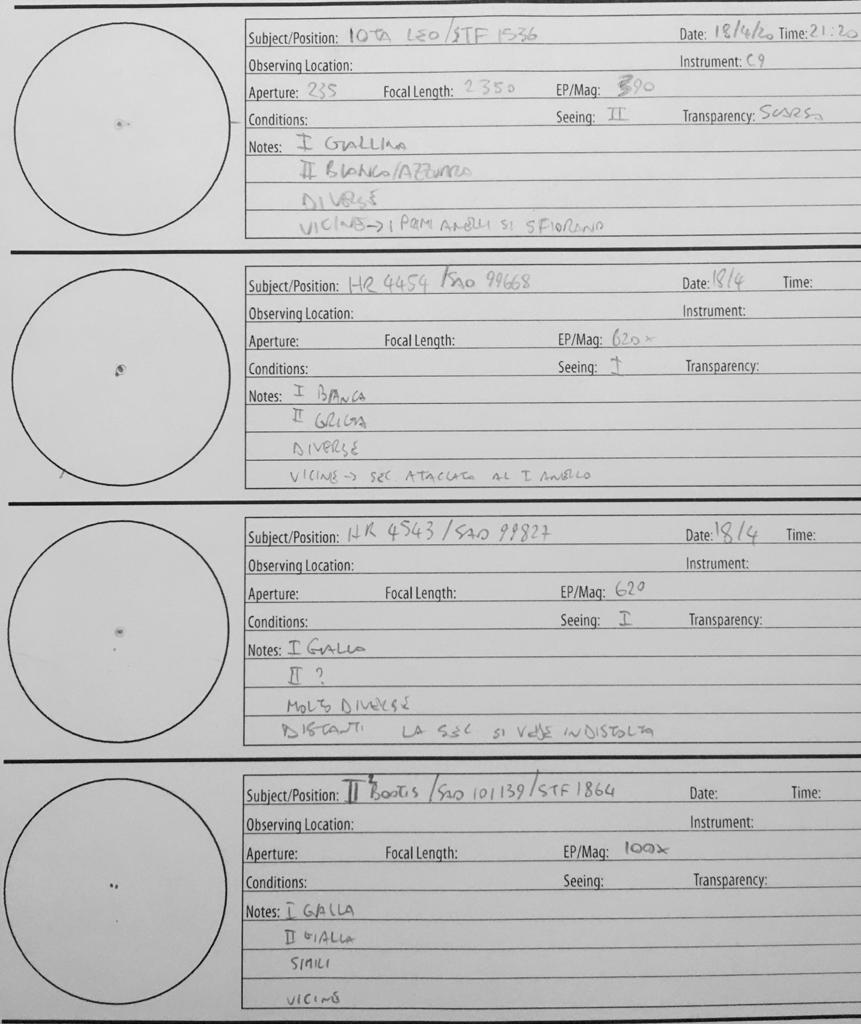 Subject/Position: IOTA LEO/STF 1536 Date: 18/4/20 Time: 21:20
Observing Location: Instrument: C9
Aperture: 235 Focal Length: 2350 EP/Mag: 390
Conditions: Seeing: II Transparency: SCARSA
Notes: I GIALLINA
II BIANCO/AZZURRO
DIVERSE
VICINE → I PRIMI ANELLI SI SFIORANO
Subject/Position: HR 4454 /SAO 99668 Date: 18/4 Time:
Observing Location: Instrument:
Aperture: Focal Length: EP/Mag: 620x
Conditions: Seeing: I Transparency:
Notes: I BIANCA
II GRIGIA
DIVERSE
VICINE → SEC ATACCATO AL I ANELLO
Subject/Position: HR 4543/SAO 99827 Date: 18/4 Time:
Observing Location: Instrument:
Aperture: Focal Length: EP/Mag: 620
Conditions: Seeing: I Transparency:
Notes: I GIALLO
II ?
MOLTO DIVERSE
DISTANTI LA SEC SI VEDE IN DISTOLTA
Subject/Position: II² Bootis /SAO 101139/STF 1864 Date: Time:
Observing Location: Instrument:
Aperture: Focal Length: EP/Mag: 100x
Conditions: Seeing: Transparency:
Notes: I GIALLA
II GIALLA
SIMILI
VICINE